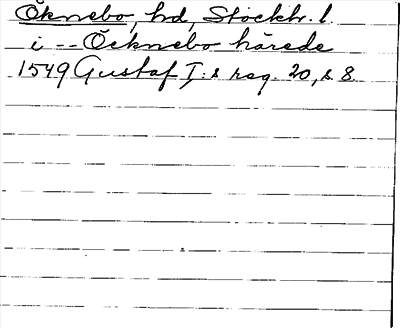 Öknebo, hd, Stockh. l.
i -- Öcknebo härede
1549 Gustaf I:s reg. 20, s 8.